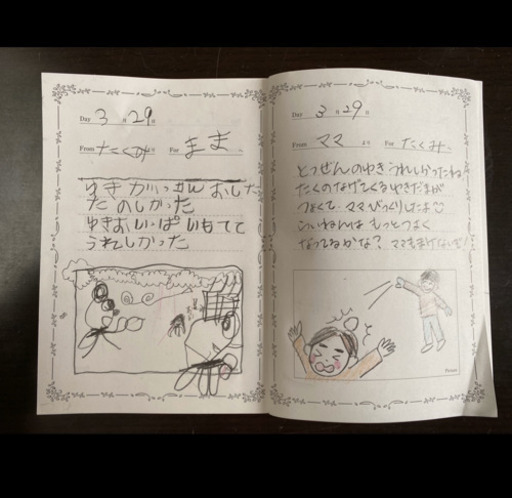 Day 3月29日
From たくみ For まま
ゆきがっせんおした
たのしかった
ゆきおいっぱいもてて
うれしかった
Day 3月29日
From ママより For たくみへ
とつぜんのゆきうれしかったね
たくのなげてくるゆきだまが
つよくて、ママびっくりしたよ
らいねんは もっとつよく
なってるかな? ママもまけないぞ!